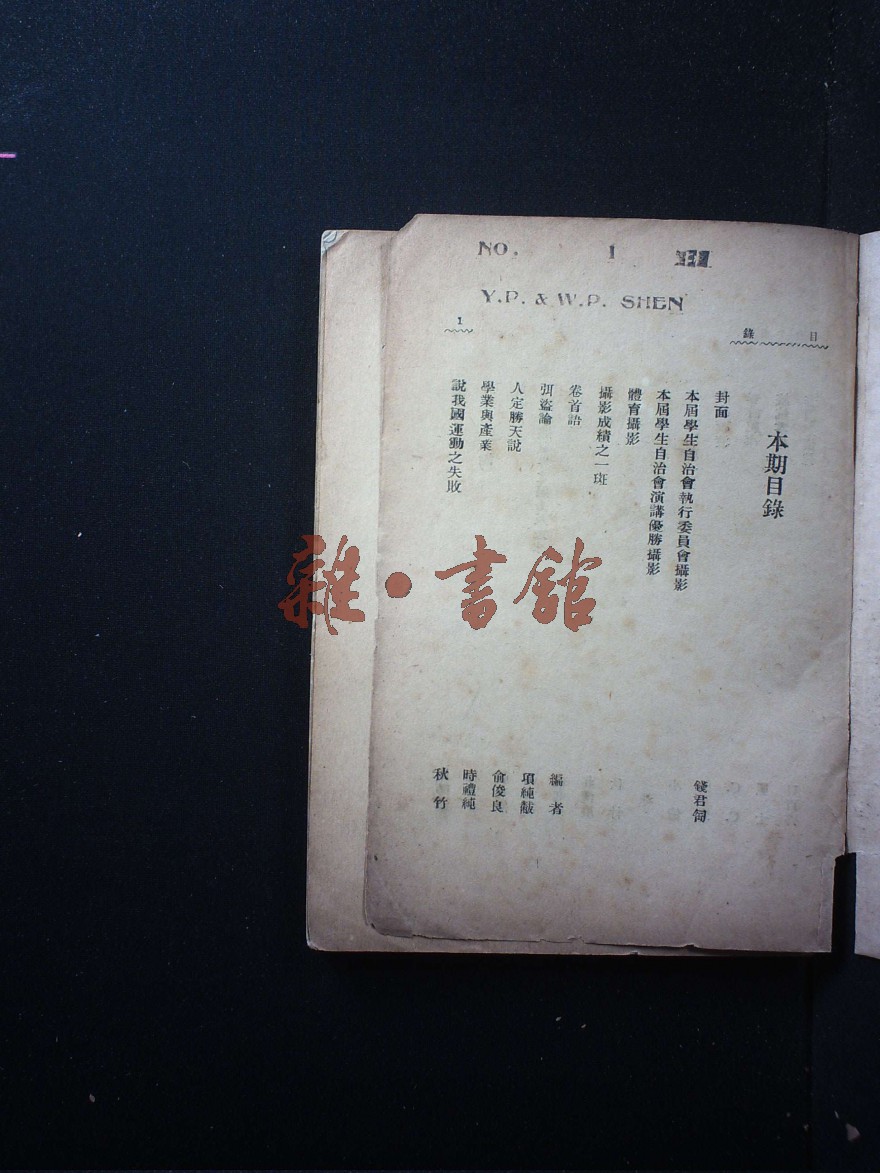 NO. 1
Y.P. & W.P. SHEN
目錄
1
本期目錄
封面 錢君匋
本屆學生自治會執行委員會攝影
本屆學生自治會演講優勝攝影
體育攝影
攝影成績之一斑
卷首語 編者
弭盜論 項純黻
人定勝天說 俞俊良
學業與產業 時禮純
說我國運動之失敗 秋竹
雜·書館